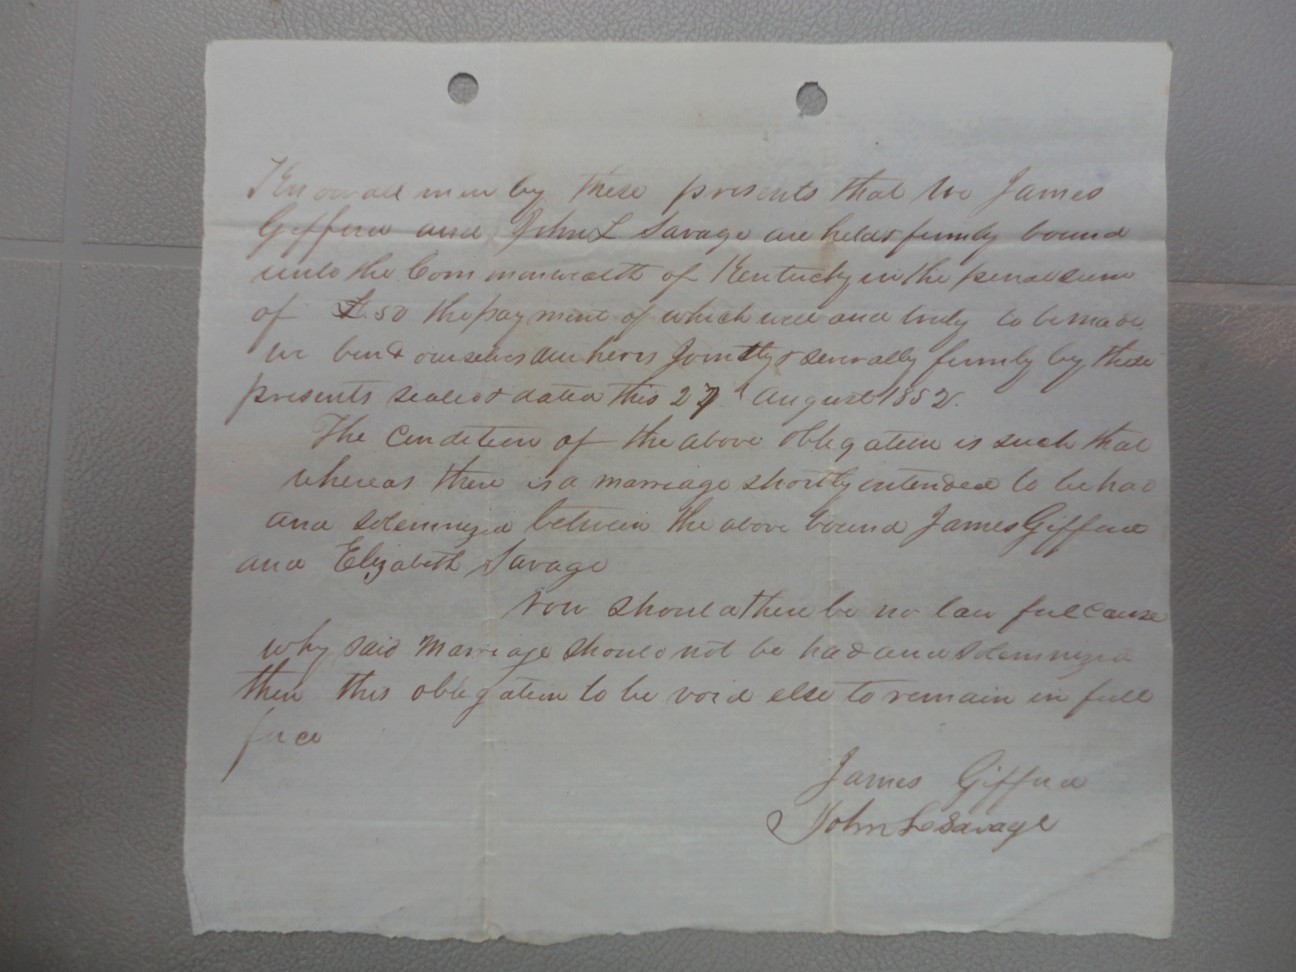 Know all men by these presents that we James
Gifford and John L Savage are held & firmly bound
unto the Commonwealth of Kentucky in the penal sum
of £50 the payment of which well and truly to be made
we bind ourselves our heirs Jointly & severally firmly by these
presents sealed & dated this 27 August 1852.
The condition of the above obligation is such that
whereas there is a marriage shortly intended to be had
and solemnized between the above bound James Gifford
and Elizabeth Savage
Now should there be no lawful cause
why said Marriage should not be had and solemnized
then this obligation to be void else to remain in full
force
James Gifford
John L Savage